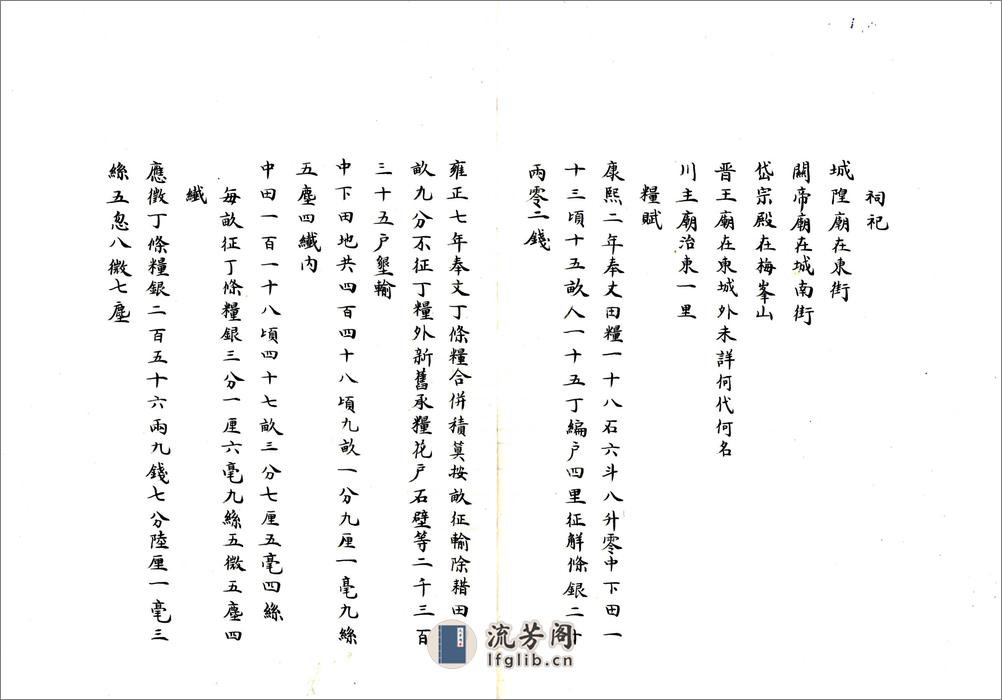 祠祀
城隍廟在東街
關帝廟在城南街
岱宗殿在梅峯山
晋王廟在東城外未詳何代何名
川主廟治東一里
糧賦
康熙二年奉丈田糧一十八石六斗八升零中下田一
十三頃十五畝八一十五丁編户四里征解條銀二十
兩零二錢
雍正七年奉文丁條糧合併積算按畝征輸除耤田
畝九分不征丁糧外新舊承糧花户石璧等二千三百
三十五户墾輸
中下田地共四百四十八頃九畝一分九厘一毫九絲
五塵四纖內
中田一百一十八頃四十七畝三分七厘五毫四絲
每畝征丁條糧銀三分一厘六毫九絲五微五塵四
纖
應徵丁條糧銀二百五十六兩九錢七分陸厘一毫三
絲五忽八微七塵
流芳阁
lfglib.cn